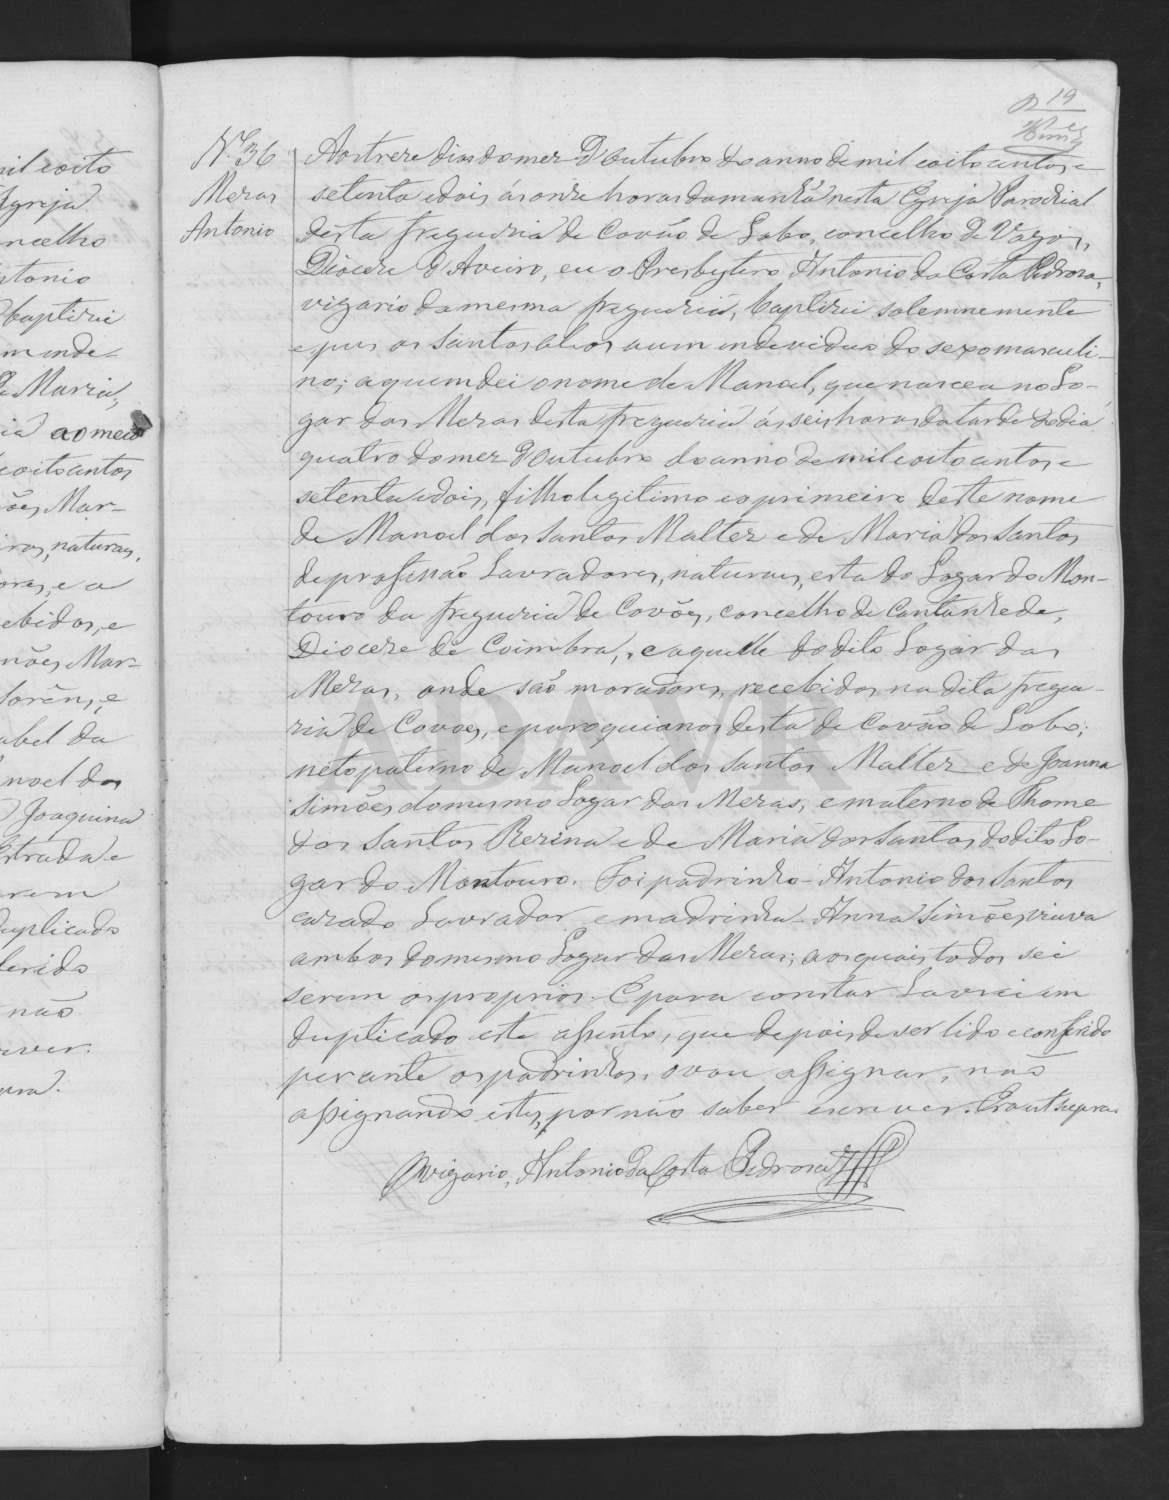 19
N.º 36
Mezas
Antonio
Aos treze dias do mez d'Outubro do anno de mil e oito centos e
setenta e dois, ás onze horas da manhã nesta Egreja Parochial
desta freguezia de Covão de Lobo, concelho de Vagos,
Diocese d'Aveiro, eu o Presbytero Antonio da Costa Pedrosa,
vigario da mesma freguezia, baptizei solemnemente
e puz os santos oleos a um individuo do sexo masculi-
no; a quem dei o nome de Manoel, que nasceu no Lo-
gar das Mezas desta freguezia ás seis horas da tarde do dia
quatro do mez d'Outubro do anno de mil e oito centos e
setenta e dois, filho legitimo e o primeiro deste nome
de Manoel dos Santos Maltez e de Maria dos Santos
de profissão Lavradores, naturaes, esta do Logar do Mon-
touro da freguezia de Covões, concelho de Cantanhede,
Diocese de Coimbra, e aquelle do dito Logar das
Mezas, onde são moradores, recebidos na dita fregue-
zia de Covões, e paroquianos desta de Covão de Lobo;
neto paterno de Manoel dos Santos Maltez e de Joanna
Simões do mesmo Logar das Mezas, e materno de Thome
dos Santos Rezina e de Maria dos Santos do dito Lo-
gar do Montouro. Foi padrinho Antonio dos Santos
cazado Lavrador e madrinha Anna Simões viuva
ambos do mesmo Logar das Mezas; aos quais todos sei
serem os proprios. E para constar Lavrei em
duplicado este assento, que depois de ser lido e conferido
perante os padrinhos, o vou assignar, não
assignando estes, por não saber escrever. Era ut supra.
O vigario, Antonio da Costa Pedrosa
ADAVR
mil e oito
Egreja
ncelho
ntonio
baptizei
m inde-
Maria,
ao meio
e oito centos
ões, Mar-
iros, naturaes,
ores, e a
ebidos, e
mões, Mar-
abel da
noel dos
Joaquina
strada e
erem
duplicado
ferido
não
ever.
pra.